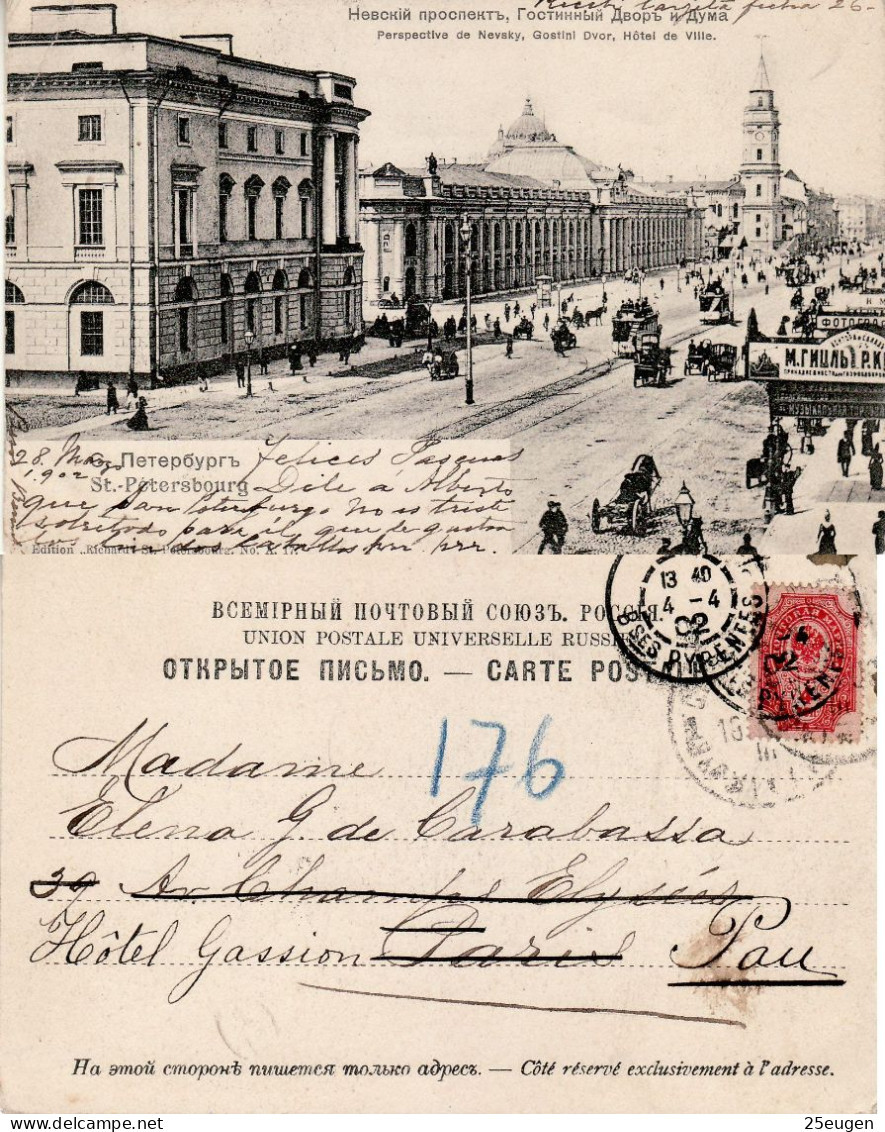 Невскій проспектъ, Гостинный Дворъ и Дума
Perspective de Nevsky, Gostini Dvor, Hôtel de Ville.
М. ГИЦЛЬ
С. Петербургъ
St.-Petersbourg
28. Mayo
1902
Felices Pascuas
Dile á Alberto
que San Petersburgo No es triste
sobretodo para él que le gustan
los lindos caballos
Edition „Richard“ St. Petersbourg. No.
ВСЕМІРНЫЙ ПОЧТОВЫЙ СОЮЗЪ. РОССІЯ.
UNION POSTALE UNIVERSELLE RUSSIE
ОТКРЫТОЕ ПИСЬМО. — CARTE POST
13 40
4 - 4
02
BSES PYRENEES
176
Madame
Elena G. de Carabassa
39 Av Champs Elysées
Hôtel Gassion Paris Pau
На этой сторонѣ пишется только адресъ. — Côté réservé exclusivement à l'adresse.
25eugen